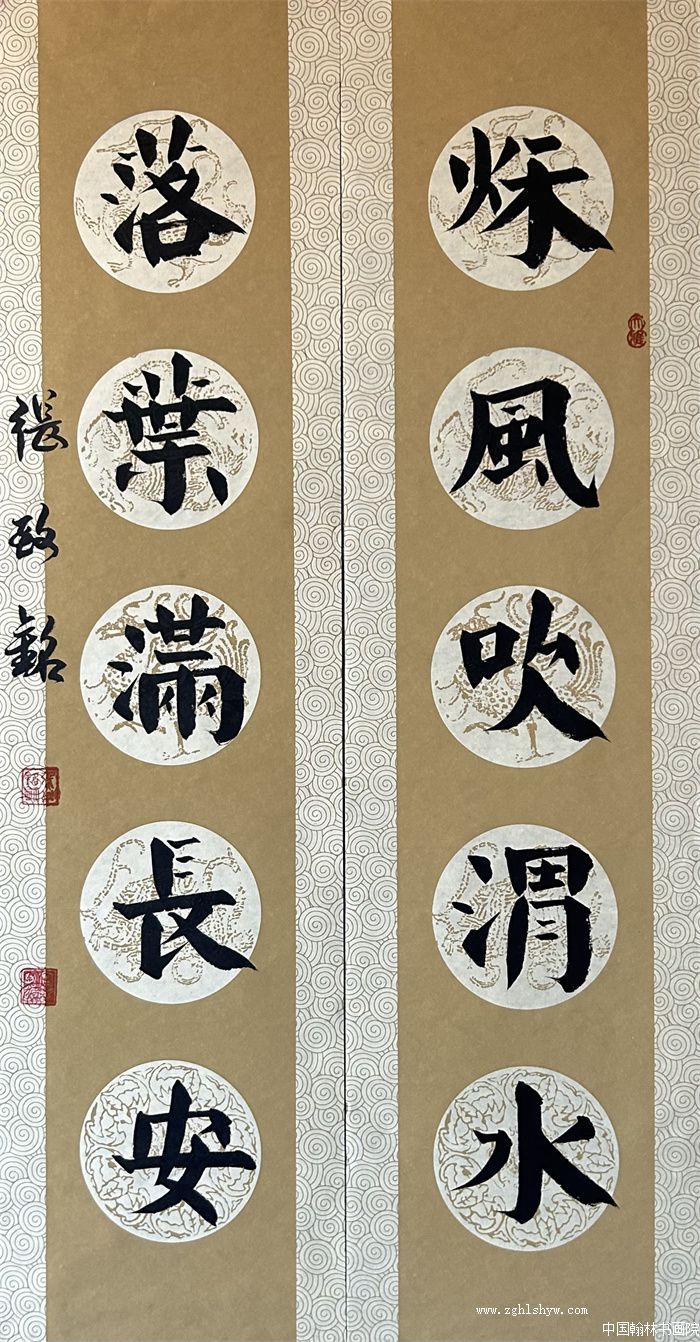 秌風吹渭水
落葉滿長安
張致銘
www.zghlshyw.com
中国翰林书画院